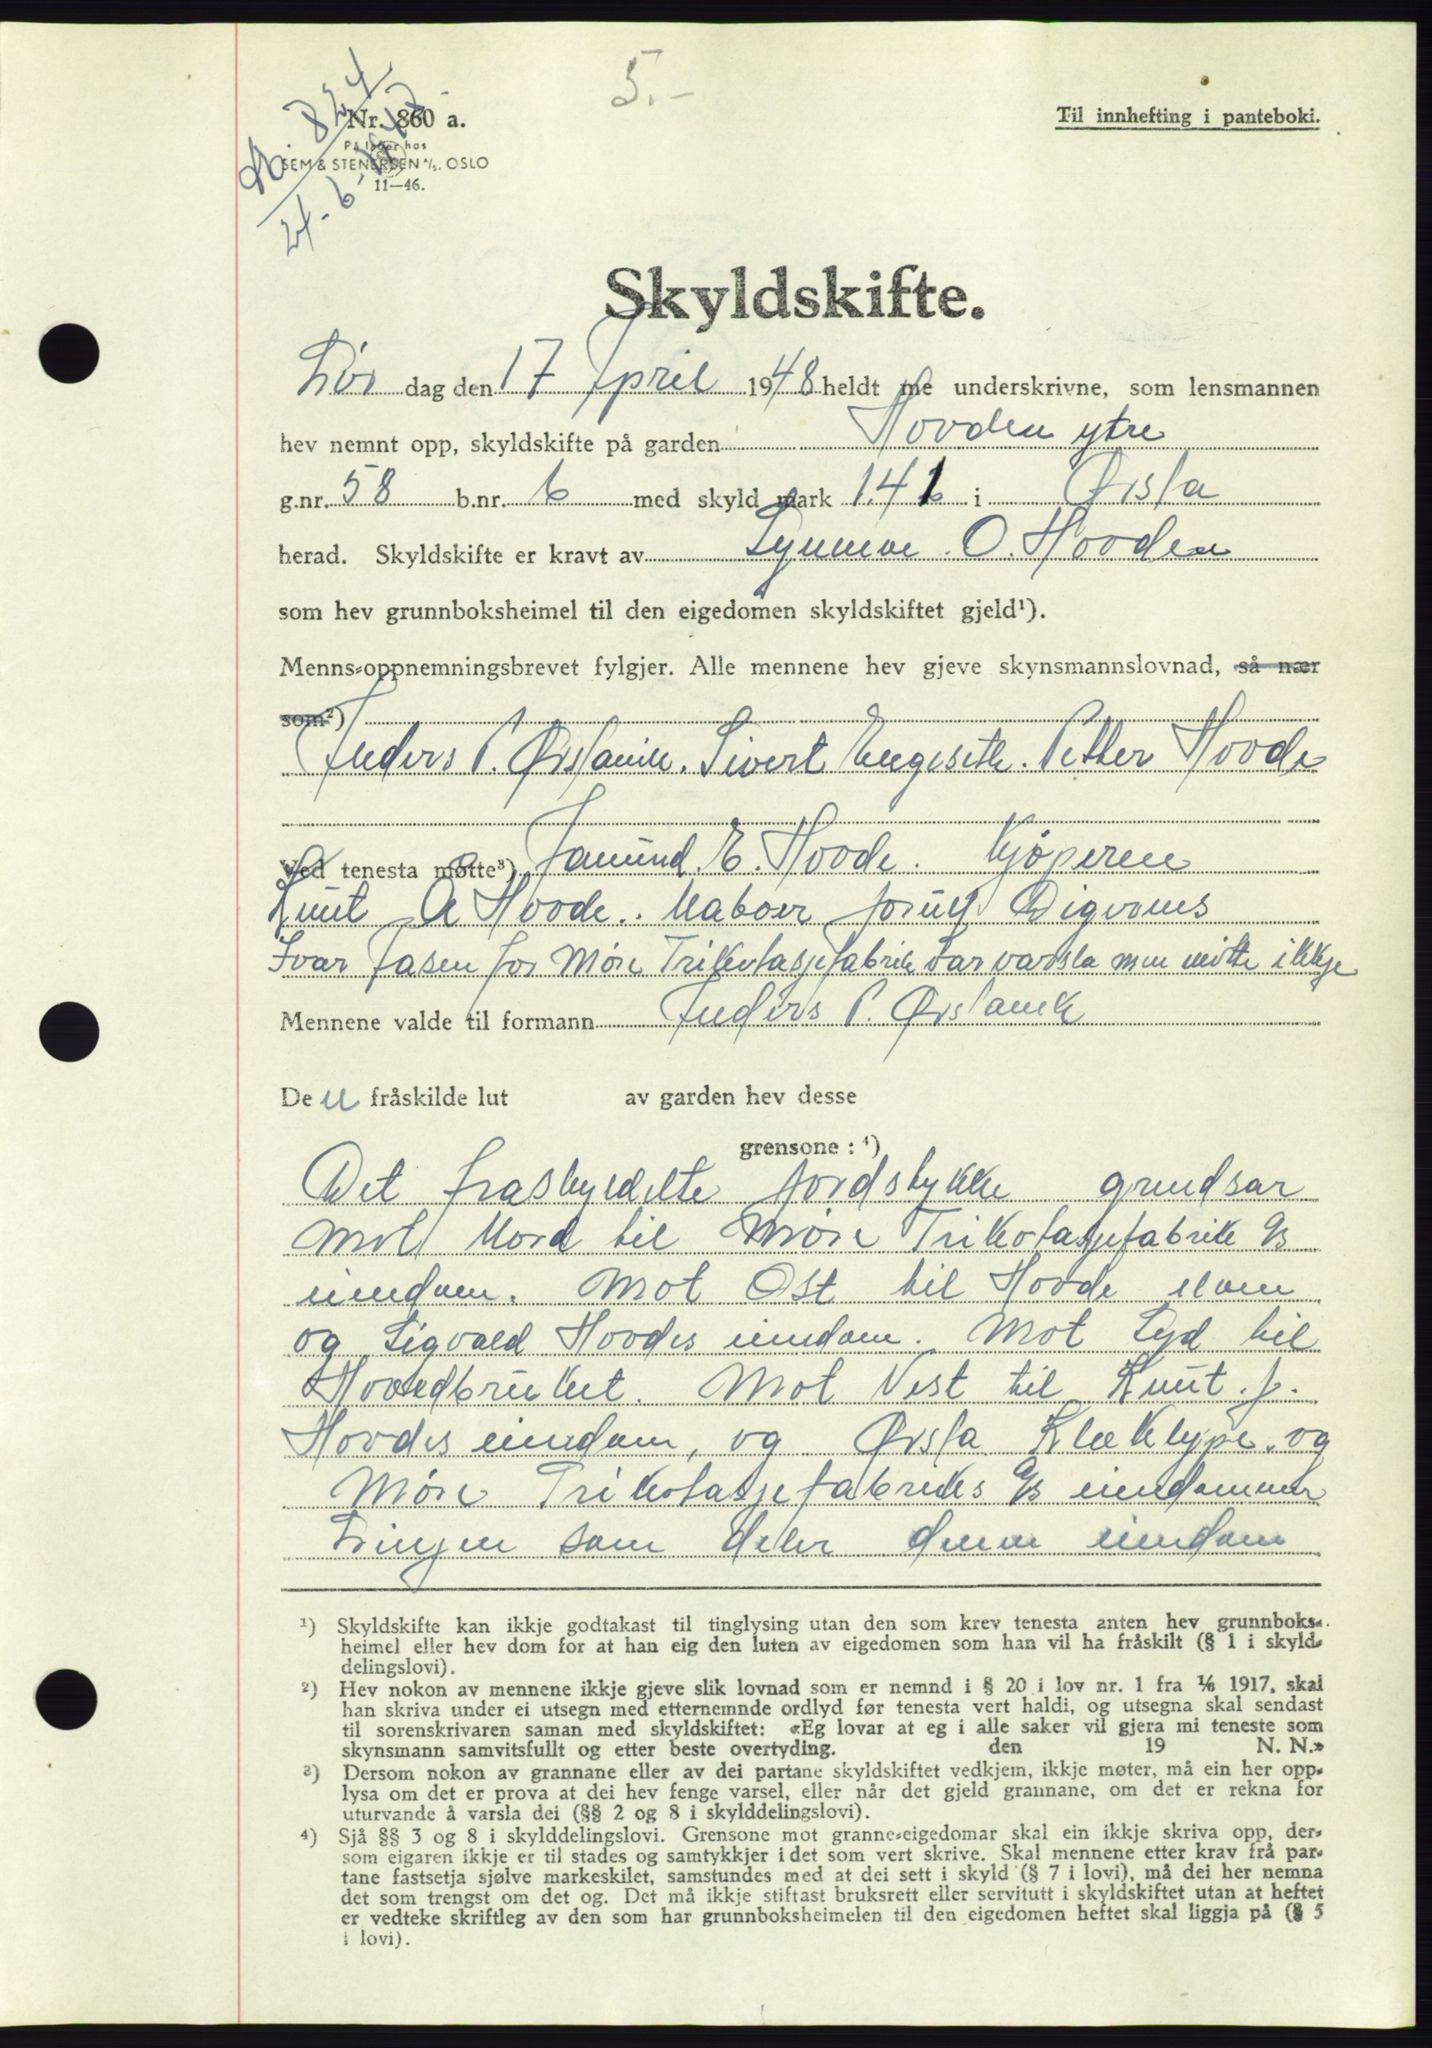 5.-
Nr. 824
21-6-1948
Nr. 860 a.
På lager hos
SEM & STENERSEN A/S. OSLO
11—46.
Til innhefting i panteboki.
Skyldskifte.
Lør dag den 17 April 1948 heldt me underskrivne, som lensmannen
hev nemnt opp, skyldskifte på garden Hovden ytre
g.nr. 58 b.nr. 6 med skyld mark 1.41 i Ørsta
herad. Skyldskifte er kravt av Synnøve O. Hovden
som hev grunnboksheimel til den eigedomen skyldskiftet gjeld¹).
Menns-oppnemningsbrevet fylgjer. Alle mennene hev gjeve skynsmannslovnad, så nær
som²)
Anders P. Ørstavik. Sivert Engeseth. Petter Hovde
Ved tenesta møtte³) Amund. E. Hovde. Kjøperen
Knut A Hovde.. Naboer
Ivar Aasen for Møre Trikotasjefabrik var varsla men møtte ikkje
Mennene valde til formann Anders P. Ørstavik
De n fråskilde lut av garden hev desse
grensone : ⁴)
Det fraskyldelte jordstykke grendsar
mot Nord til Møre Trikotasjefabrik A/S
eiendom. Mot Ost til Hovde
og Sigvald Hovdes eiendom. Mot Syd til
Hovedbruket. Mot Vest til Knut. A.
Hovdes eiendom, og Ørsta Kleklype. og
Møre Trikotasjefabrieks A/S eiendommer
Linjen som deler denne eiendom
¹) Skyldskifte kan ikkje godtakast til tinglysing utan den som krev tenesta anten hev grunnboks-
heimel eller hev dom for at han eig den luten av eigedomen som han vil ha fråskilt (§ 1 i skyld-
delingslovi).
²) Hev nokon av mennene ikkje gjeve slik lovnad som er nemnd i § 20 i lov nr. 1 fra 1/6 1917, skal
han skriva under ei utsegn med etternemnde ordlyd før tenesta vert haldi, og utsegna skal sendast
til sorenskrivaren saman med skyldskiftet: «Eg lovar at eg i alle saker vil gjera mi teneste som
skynsmann samvitsfullt og etter beste overtyding. den 19 N. N.»
³) Dersom nokon av grannane eller av dei partane skyldskiftet vedkjem, ikkje møter, må ein her opp-
lysa om det er prova at dei hev fenge varsel, eller når det gjeld grannane, om det er rekna for
uturvande å varsla dei (§§ 2 og 8 i skylddelingslovi).
⁴) Sjå §§ 3 og 8 i skylddelingslovi. Grensone mot granne-eigedomar skal ein ikkje skriva opp, der-
som eigaren ikkje er til stades og samtykkjer i det som vert skrive. Skal mennene etter krav frå par-
tane fastsetja sjølve markeskilet, samstundes med at dei sett i skyld (§ 7 i lovi), må dei her nemna
det som trengst om det og. Det må ikkje stiftast bruksrett eller servitutt i skyldskiftet utan at heftet
er vedteke skriftleg av den som har grunnboksheimelen til den eigedomen heftet skal liggja på (§ 5
i lovi).